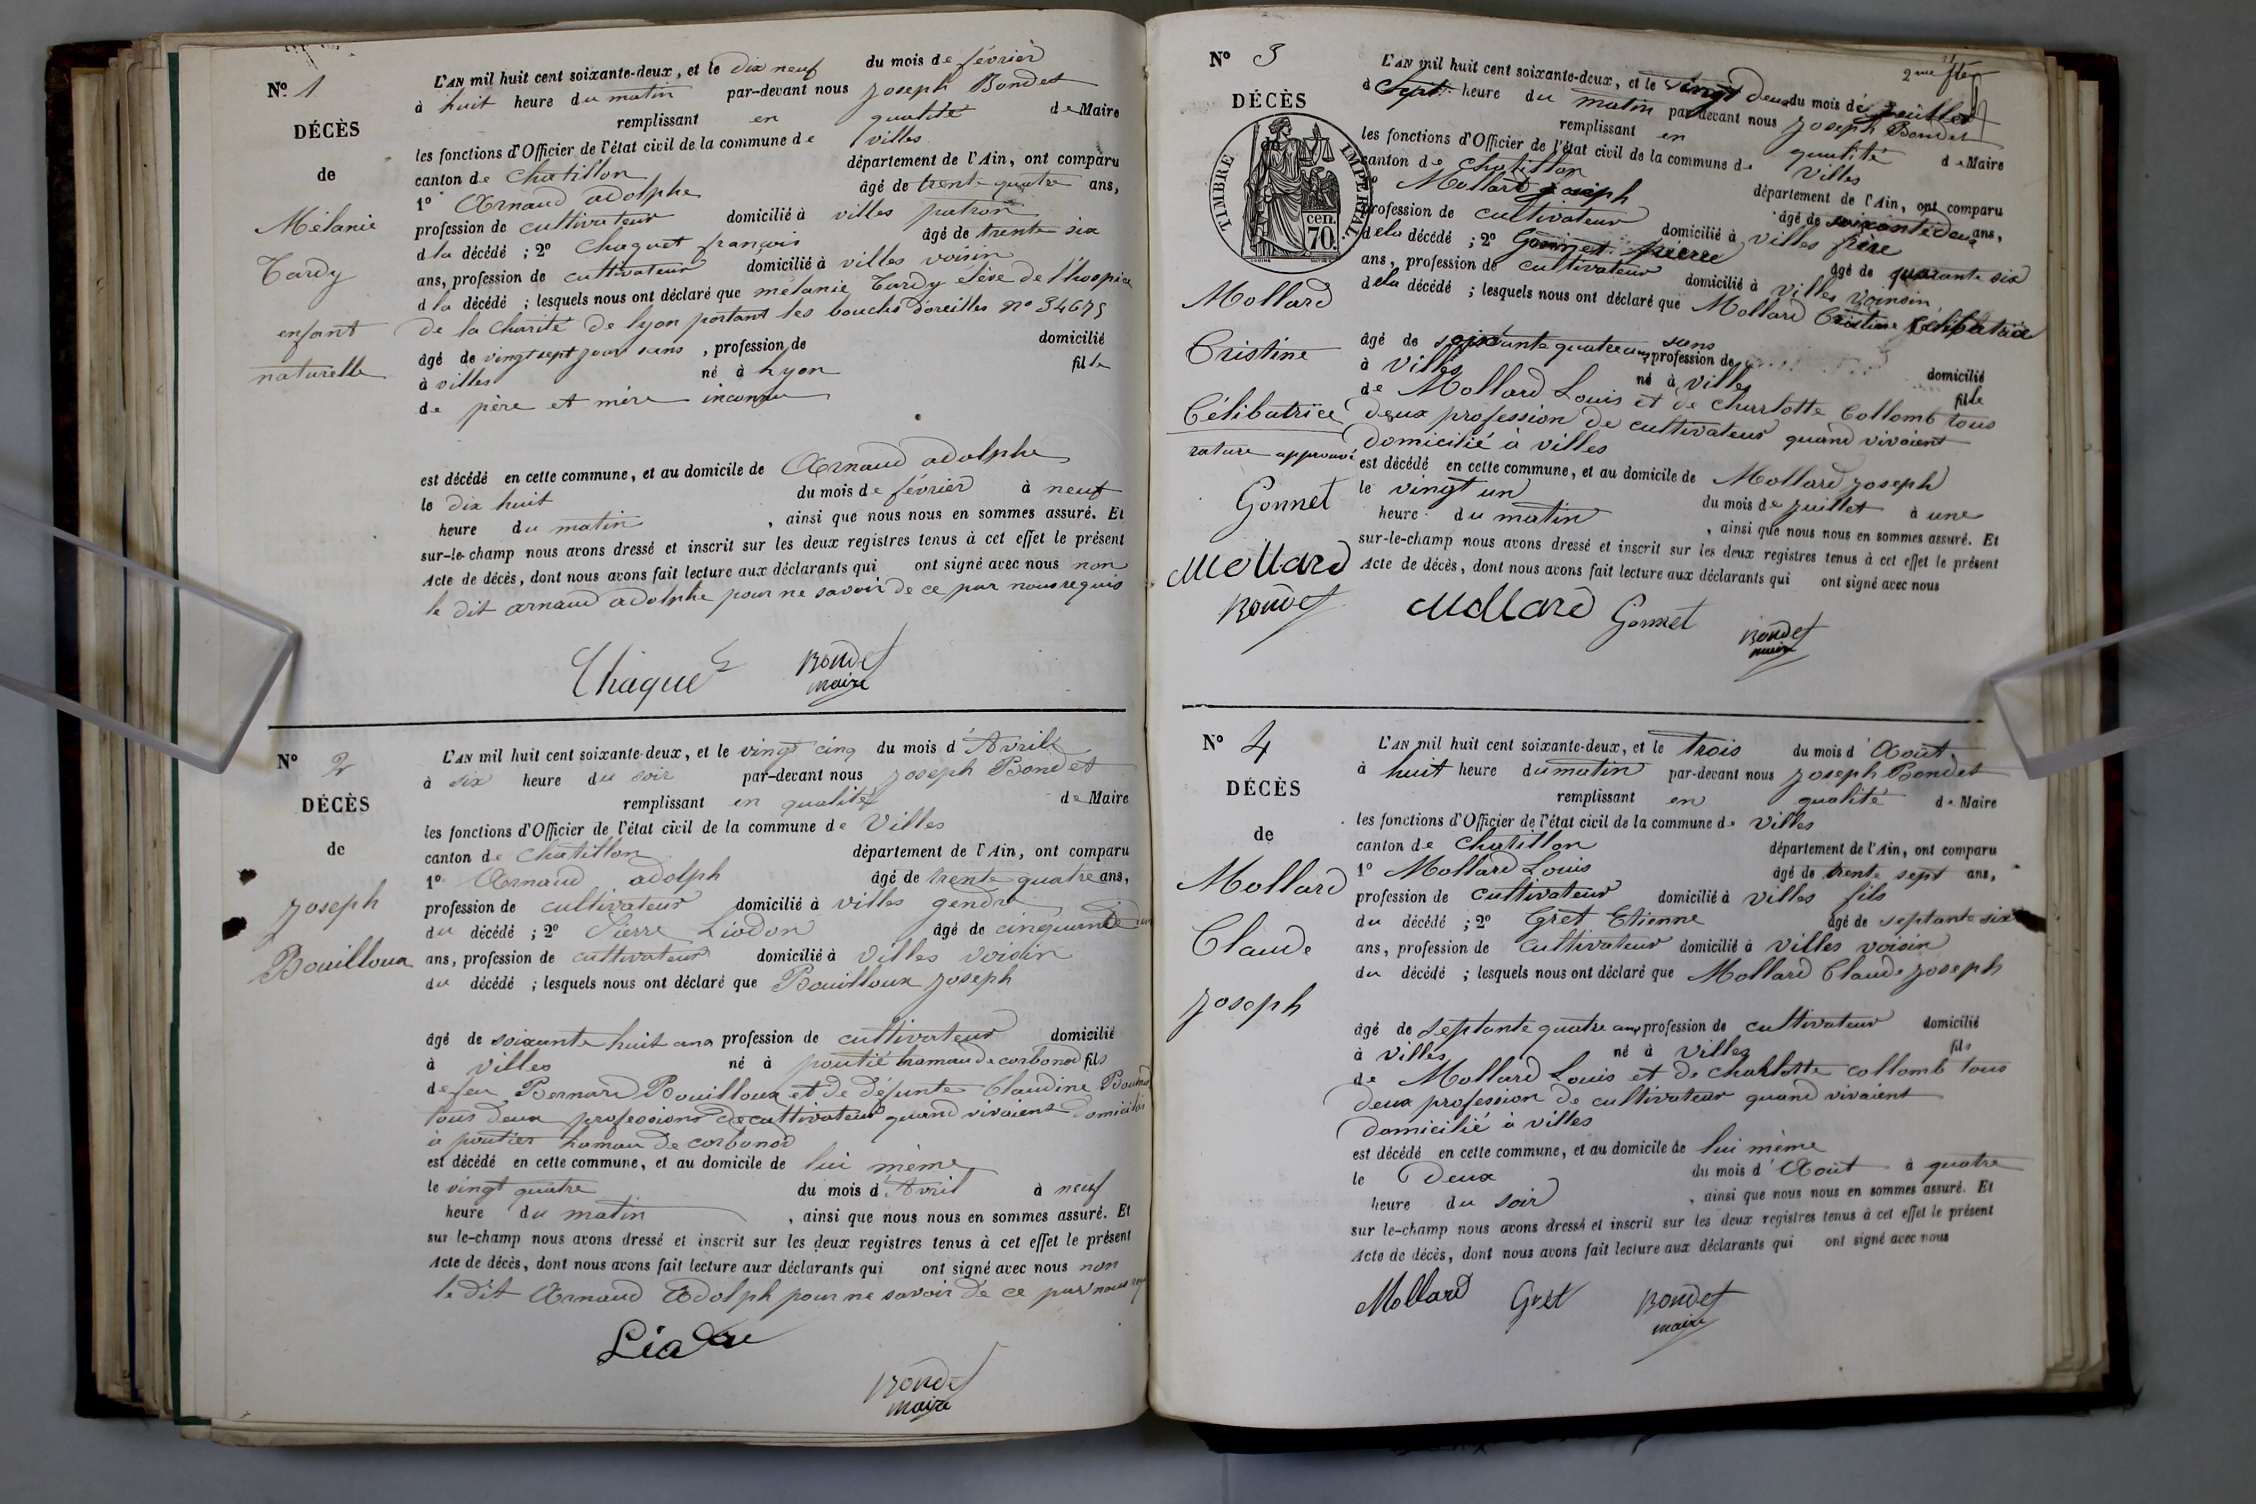 Nº 1
DÉCÈS
de
Mélanie
Tardy
enfant
naturelle
L'AN mil huit cent soixante-deux, et le dix neuf du mois de février
à huit heure du matin par-devant nous joseph Bondet
remplissant en qualité de Maire
les fonctions d'Officier de l'état civil de la commune de villes
canton de chatillon département de l'Ain, ont comparu
1º Arnaud adolphe âgé de trente quatre ans,
profession de cultivateur domicilié à villes patron
d la décédé ; 2º Chaquet françois âgé de trente six
ans, profession de cultivateur domicilié à villes voisin
d la décédé ; lesquels nous ont déclaré que mélanie Tardy élève de l'hospice
de la charité de lyon portant les boucles d'oreilles nº 34675
âgé de vingt sept jours sans , profession de domicilié
à villes né à Lyon fille
de père et mère inconnu
est décédé en cette commune, et au domicile de Arnaud adolphe
le dix huit du mois de février à neuf
heure du matin , ainsi que nous nous en sommes assuré. Et
sur-le-champ nous avons dressé et inscrit sur les deux registres tenus à cet effet le présent
Acte de décès, dont nous avons fait lecture aux déclarants qui ont signé avec nous non
le dit arnaud adolphe pour ne savoir de ce par nous requis
Chaquet Bondet
maire
Nº 2
DÉCÈS
de
joseph
Bouilloux
L'AN mil huit cent soixante-deux, et le vingt cinq du mois d'Avril
à six heure du soir par-devant nous joseph Bondet
remplissant en qualité de Maire
les fonctions d'Officier de l'état civil de la commune de Villes
canton de Chatillon département de l'Ain, ont comparu
1º Arnaud adolph âgé de trente quatre ans,
profession de cultivateur domicilié à villes gendre
du décédé ; 2º Pierre Liodon âgé de cinquante
ans, profession de cultivateur domicilié à villes voisin
du décédé ; lesquels nous ont déclaré que Bouilloux joseph
âgé de soixante huit ans profession de cultivateur domicilié
à villes né à poutié hamau de corbonod fils
de feu Bernard Bouilloux et de défunte Claudine
tous deux professions de cultivateur quand vivaient domicilié
à poutier hamau de corbonod
est décédé en cette commune, et au domicile de lui même
le vingt quatre du mois d'Avril à neuf
heure du matin , ainsi que nous nous en sommes assuré. Et
sur le-champ nous avons dressé et inscrit sur les deux registres tenus à cet effet le présent
Acte de décès, dont nous avons fait lecture aux déclarants qui ont signé avec nous non
le dit Arnaud Adolph pour ne savoir de ce par nous
Bondet
maire
Nº 3
DÉCÈS
de
TIMBRE IMPÉRIAL
70 cen.
Mollard
Cristine
Célibatrice
rature approuvé
Gonnet
Mollard
Bondet
2me
L'AN mil huit cent soixante-deux, et le vingt deux du mois de juillet
à sept heure du matin par-devant nous joseph Bondet
remplissant en qualité de Maire
les fonctions d'Officier de l'état civil de la commune de Villes
canton de Chatillon département de l'Ain, ont comparu
1º Mollard joseph âgé de soixante deux ans,
profession de cultivateur domicilié à villes frère
de la décédé ; 2º Gonnet pierre âgé de quarante six
ans, profession de cultivateur domicilié à villes voinsin
de la décédé ; lesquels nous ont déclaré que Mollard Cristine Célibatrice
âgé de soixante quatre ans sans profession de domicilié
à Villes né à Villes fille
de Mollard Louis et de charlotte Collomb tous
deux profession de cultivateur quand vivaient
domicilié à villes
est décédé en cette commune, et au domicile de Mollard joseph
le vingt un du mois de juillet à une
heure du matin , ainsi que nous nous en sommes assuré. Et
sur-le-champ nous avons dressé et inscrit sur les deux registres tenus à cet effet le présent
Acte de décès, dont nous avons fait lecture aux déclarants qui ont signé avec nous
Mollard Gonnet Bondet
maire
Nº 4
DÉCÈS
de
Mollard
Claude
joseph
L'AN mil huit cent soixante-deux, et le trois du mois d'Août
à huit heure du matin par-devant nous joseph Bondet
remplissant en qualité de Maire
les fonctions d'Officier de l'état civil de la commune de Villes
canton de Chatillon département de l'Ain, ont comparu
1º Mollard Louis âgé de trente sept ans,
profession de cultivateur domicilié à villes fils
du décédé ; 2º Gret Etienne âgé de septante six
ans, profession de cultivateur domicilié à villes voisin
du décédé ; lesquels nous ont déclaré que Mollard Claude joseph
âgé de septante quatre ans profession de cultivateur domicilié
à villes né à villes fils
de Mollard Louis et de charlotte collomb tous
deux profession de cultivateur quand vivaient
domicilié à villes
est décédé en cette commune, et au domicile de lui même
le Deux du mois d'Août à quatre
heure du soir , ainsi que nous nous en sommes assuré. Et
sur le-champ nous avons dressé et inscrit sur les deux registres tenus à cet effet le présent
Acte de décès, dont nous avons fait lecture aux déclarants qui ont signé avec nous
Mollard Gret Bondet
maire